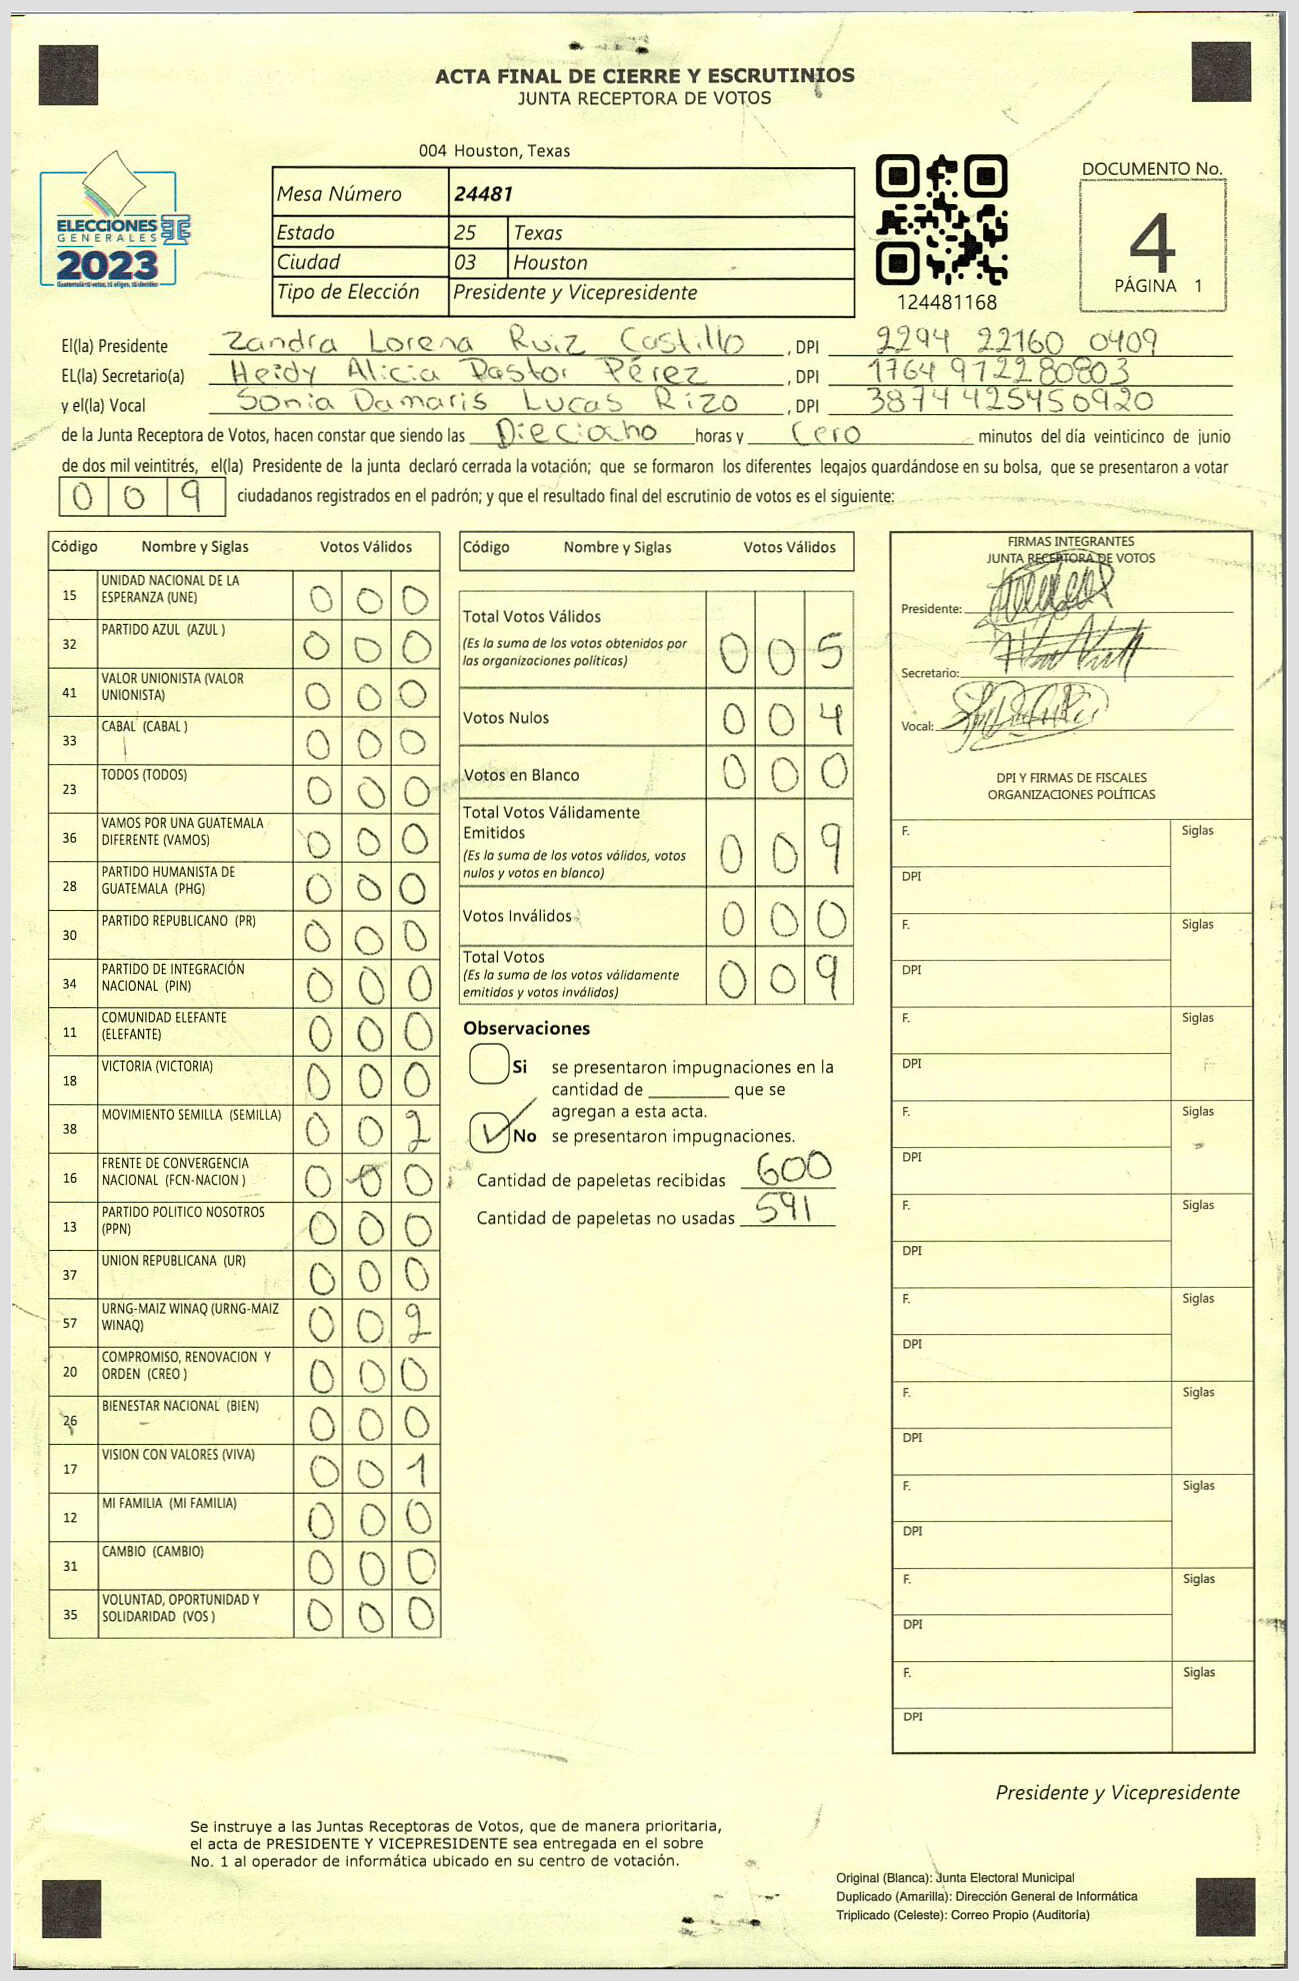 ACTA FINAL DE CIERRE Y ESCRUTINIOS
JUNTA RECEPTORA DE VOTOS
004 Houston, Texas
ELECCIONES
GENERALES
2023
Mesa Número 24481
Estado 25 Texas
Ciudad 03 Houston
Tipo de Elección Presidente y Vicepresidente
124481168
DOCUMENTO No.
4
PÁGINA 1
El(la) Presidente Zandra Lorena Ruiz Castillo, DPI 2294 22160 0409
EL(la) Secretario(a) Heidy Alicia Pastor Pérez, DPI 1764 97228 0803
y el(la) Vocal Sonia Damaris Lucas Rizo, DPI 3874 42545 0920
de la Junta Receptora de Votos, hacen constar que siendo las Dieciocho horas y Cero minutos del día veinticinco de junio
de dos mil veintitrés, el(la) Presidente de la junta declaró cerrada la votación; que se formaron los diferentes legajos guardándose en su bolsa, que se presentaron a votar
0 0 9 ciudadanos registrados en el padrón; y que el resultado final del escrutinio de votos es el siguiente:
Código Nombre y Siglas Votos Válidos
15 UNIDAD NACIONAL DE LA ESPERANZA (UNE) 0 0 0
32 PARTIDO AZUL (AZUL ) 0 0 0
41 VALOR UNIONISTA (VALOR UNIONISTA) 0 0 0
33 CABAL (CABAL ) 0 0 0
23 TODOS (TODOS) 0 0 0
36 VAMOS POR UNA GUATEMALA DIFERENTE (VAMOS) 0 0 0
28 PARTIDO HUMANISTA DE GUATEMALA (PHG) 0 0 0
30 PARTIDO REPUBLICANO (PR) 0 0 0
34 PARTIDO DE INTEGRACIÓN NACIONAL (PIN) 0 0 0
11 COMUNIDAD ELEFANTE (ELEFANTE) 0 0 0
18 VICTORIA (VICTORIA) 0 0 0
38 MOVIMIENTO SEMILLA (SEMILLA) 0 0 2
16 FRENTE DE CONVERGENCIA NACIONAL (FCN-NACION ) 0 0 0
13 PARTIDO POLITICO NOSOTROS (PPN) 0 0 0
37 UNION REPUBLICANA (UR) 0 0 0
57 URNG-MAIZ WINAQ (URNG-MAIZ WINAQ) 0 0 2
20 COMPROMISO, RENOVACION Y ORDEN (CREO ) 0 0 0
26 BIENESTAR NACIONAL (BIEN) 0 0 0
17 VISION CON VALORES (VIVA) 0 0 1
12 MI FAMILIA (MI FAMILIA) 0 0 0
31 CAMBIO (CAMBIO) 0 0 0
35 VOLUNTAD, OPORTUNIDAD Y SOLIDARIDAD (VOS ) 0 0 0
Código Nombre y Siglas Votos Válidos
Total Votos Válidos 0 0 5
(Es la suma de los votos obtenidos por
las organizaciones políticas)
Votos Nulos 0 0 4
Votos en Blanco 0 0 0
Total Votos Válidamente
Emitidos 0 0 9
(Es la suma de los votos válidos, votos
nulos y votos en blanco)
Votos Inválidos 0 0 0
Total Votos 0 0 9
(Es la suma de los votos válidamente
emitidos y votos inválidos)
Observaciones
Si se presentaron impugnaciones en la
cantidad de ________ que se
agregan a esta acta.
No se presentaron impugnaciones.
Cantidad de papeletas recibidas 600
Cantidad de papeletas no usadas 591
FIRMAS INTEGRANTES
JUNTA RECEPTORA DE VOTOS
Presidente:
Secretario:
Vocal:
DPI Y FIRMAS DE FISCALES
ORGANIZACIONES POLÍTICAS
F. Siglas
DPI
F. Siglas
DPI
F. Siglas
DPI
F. Siglas
DPI
F. Siglas
DPI
F. Siglas
DPI
F. Siglas
DPI
F. Siglas
DPI
F. Siglas
DPI
F. Siglas
DPI
Presidente y Vicepresidente
Se instruye a las Juntas Receptoras de Votos, que de manera prioritaria,
el acta de PRESIDENTE Y VICEPRESIDENTE sea entregada en el sobre
No. 1 al operador de informática ubicado en su centro de votación.
Original (Blanca): Junta Electoral Municipal
Duplicado (Amarilla): Dirección General de Informática
Triplicado (Celeste): Correo Propio (Auditoría)